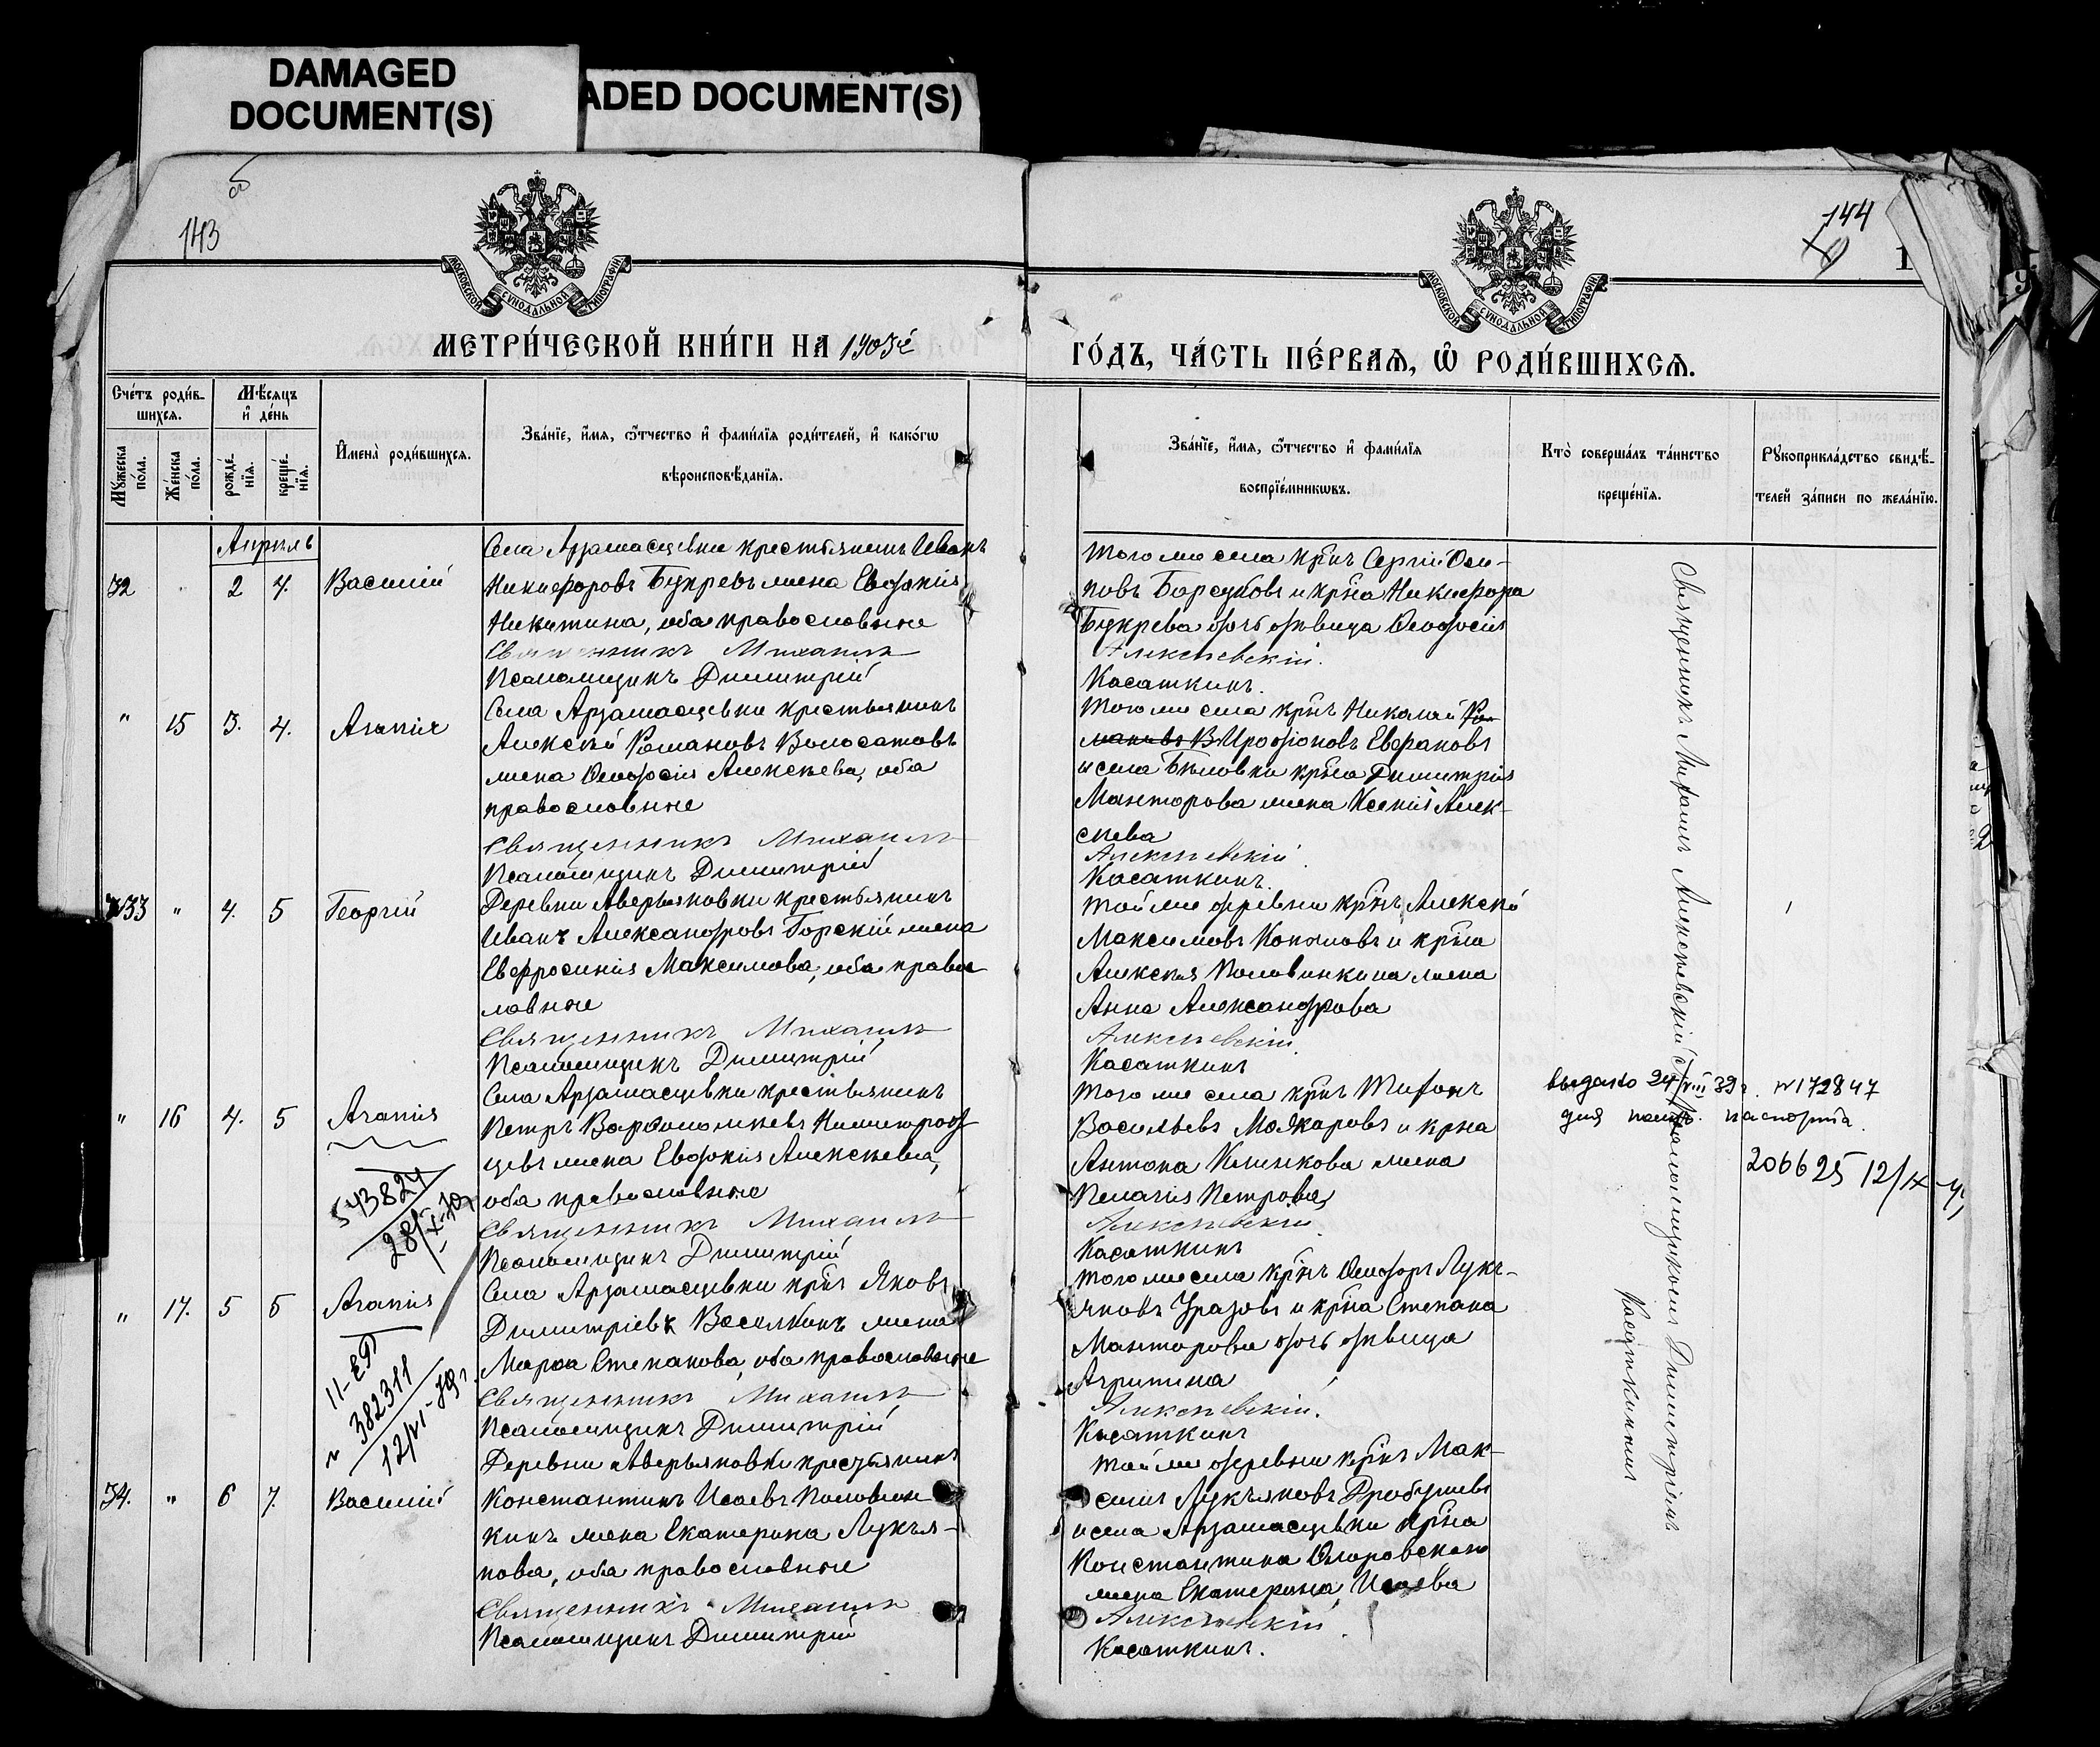 DAMAGED
DOCUMENT(S)
ADED DOCUMENT(S)
143
144
МОСКОВСКОЙ СѴНОДАЛЬНОЙ ТИПОГРАФІИ
МОСКОВСКОЙ СѴНОДАЛЬНОЙ ТИПОГРАФІИ
МЕТРИ́ЧЕСКОЙ КНИ́ГИ НА 1903й
ГО́ДЪ, ЧА́СТЬ ПЕ́РВАѦ, Ѽ РОДИ́ВШИХСѦ.
Сче́тъ роди́вшихсѧ.
Мѣ́сѧцъ и҆ де́нь
Мꙋ́жеска по́ла.
Же́нска по́ла.
рожде́нїѧ.
креще́нїѧ.
И҆мена̀ роди́вшихсѧ.
Зва́нїе, и҆́мѧ, ѻ҆́тчество и҆ фами́лїѧ роди́телей, и҆ како́гѡ
вѣроисповѣ́данїѧ.
Зва́нїе, и҆́мѧ, ѻ҆́тчество и҆ фами́лїѧ
воспрїе́мникѡвъ.
Кто̀ соверша́лъ та́инство
креще́нїѧ.
Рꙋкоприкла́дство свидѣ́-
телей за́писи по жела́нїю.
Апрѣль
32 " 2 4. Василій
Села Арзамасцевки крестьянинъ Иванъ
Никифоровъ Букревъ жена Евдокія
Никитина, оба православные
Священникъ Михаилъ
Псаломщикъ Димитрій
Того же села кр̃нъ Сергій Оси-
повъ Барсуковъ и кр̃на Никифора
Букрева дочь дѣвица Ѳеодосія
Алексѣевскій.
Касаткинъ.
" 15 3. 4. Агапія
Села Арзамасцевки крестьянинъ
Алексѣй Романовъ Волосатовъ
жена Ѳеодосія Алексѣева, оба
православные
Священникъ Михаилъ
Псаломщикъ Димитрій
Того же села кр̃нъ Николай Ро-
мановъ В Иродіоновъ
и села Бѣловки кр̃на Димитрія
Манторова жена Ксенія Алек-
сѣева
Алексѣевскій.
Касаткинъ.
33 " 4. 5 Георгій
Деревни Аверьяновки крестьянинъ
Иванъ Александровъ Горскій жена
Евфросинія Максимова, оба право-
славные
Священникъ Михаилъ
Псаломщикъ Димитрій
Той же деревни кр̃нъ Алексѣй
Максимовъ и кр̃на
Алексѣя Половинкина жена
Анна Александрова
Алексѣевскій.
Касаткинъ
" 16 4. 5 Агапія
543824
28/IX-39г
Села Арзамасцевки крестьянинъ
Петръ Варѳоломѣевъ
жена Евдокія Алексѣева,
оба православные
Священникъ Михаилъ
Псаломщикъ Димитрій
Того же села кр̃нъ Тихонъ
Васильевъ Мажаровъ и кр̃на
Антона Клинкова жена
Пелагія Петрова
Алексѣевскій.
Касаткинъ
выдано 24/VIII 39г. №172847
для получ. паспорта.
206625 12/IX-
" 17. 5 5 Агапія
№ 382311
12/VI-39г.
Села Арзамасцевки кр̃нъ Яковъ
Димитріевъ Веселкинъ жена
Марѳа Степанова, оба православные
Священникъ Михаилъ
Псаломщикъ Димитрій
Того же села кр̃нъ Ѳеодоръ Лукъ-
яновъ Уразовъ и кр̃на Степана
Манторова дочь дѣвица
Агрипина
Алексѣевскій.
Касаткинъ
34. " 6 7. Василій
Деревни Аверьяновки крестьянинъ
Константинъ Исаевъ Половин-
кинъ жена Екатерина Лукъя-
нова, оба православные
Священникъ Михаилъ
Псаломщикъ Димитрій
Той же деревни кр̃нъ Мак-
симъ Лукъяновъ
и села Арзамасцевки кр̃на
Константина
жена Екатерина Исаева
Алексѣевскій.
Касаткинъ.
Священникъ Михаилъ Алексѣевскій съ псаломщикомъ Димитріемъ
Касаткинымъ